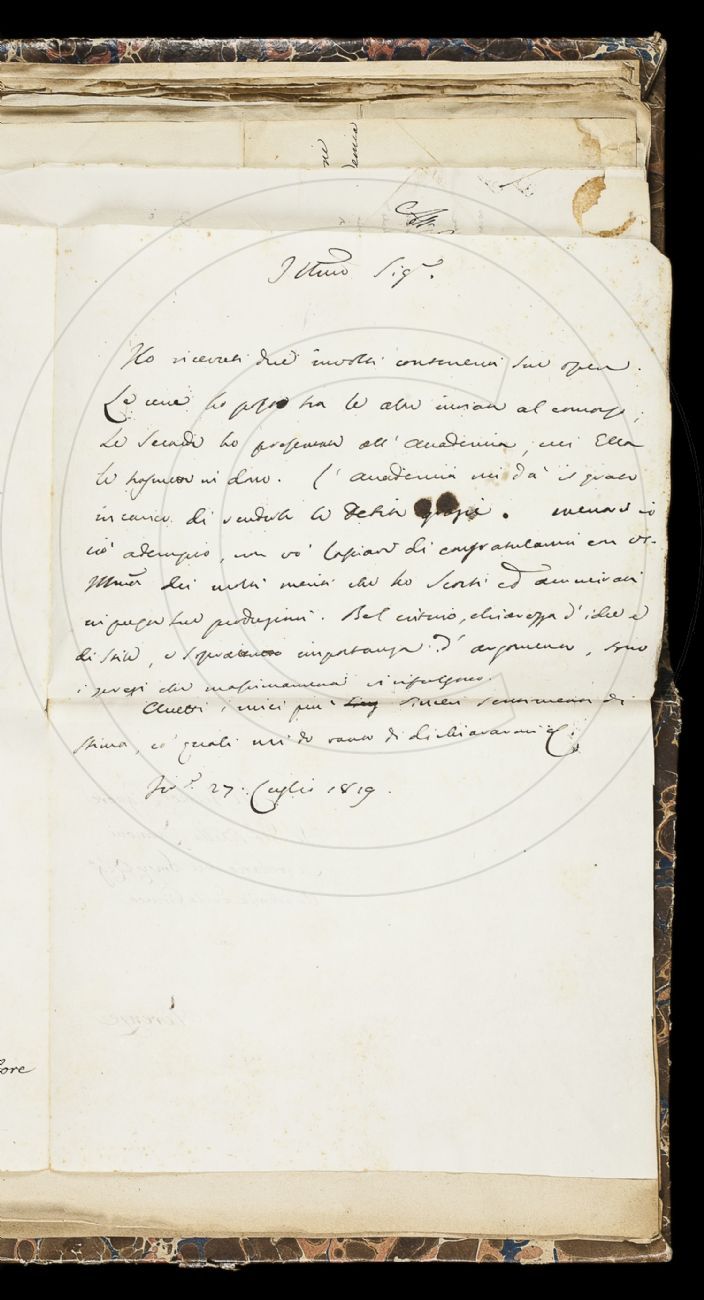 Illmo Sigr.
Ho ricevuti due involti contenenti sue opere.
Le une ho posto tra le altre inviate al concorso;
Le seconde ho presentate all' accademia, cui Ella
le in dono. L' accademia mi dà il grato
incarico di renderle le debite grazie. mentre io
ciò adempio, non vo' lasciare di congratularmi con VS.
Illma dei molti meriti che ho scorti ed ammirati
sue produzioni. Bel criterio, chiarezza d' idee e
di stile, e importanza d' argomento, sono
i pregi che massimamente vi rifulgono.
Accetti i miei più sinceri sentimenti di
stima, co' quali mi do vanto di dichiararmi &c.
Fir. 27. Luglio 1819.